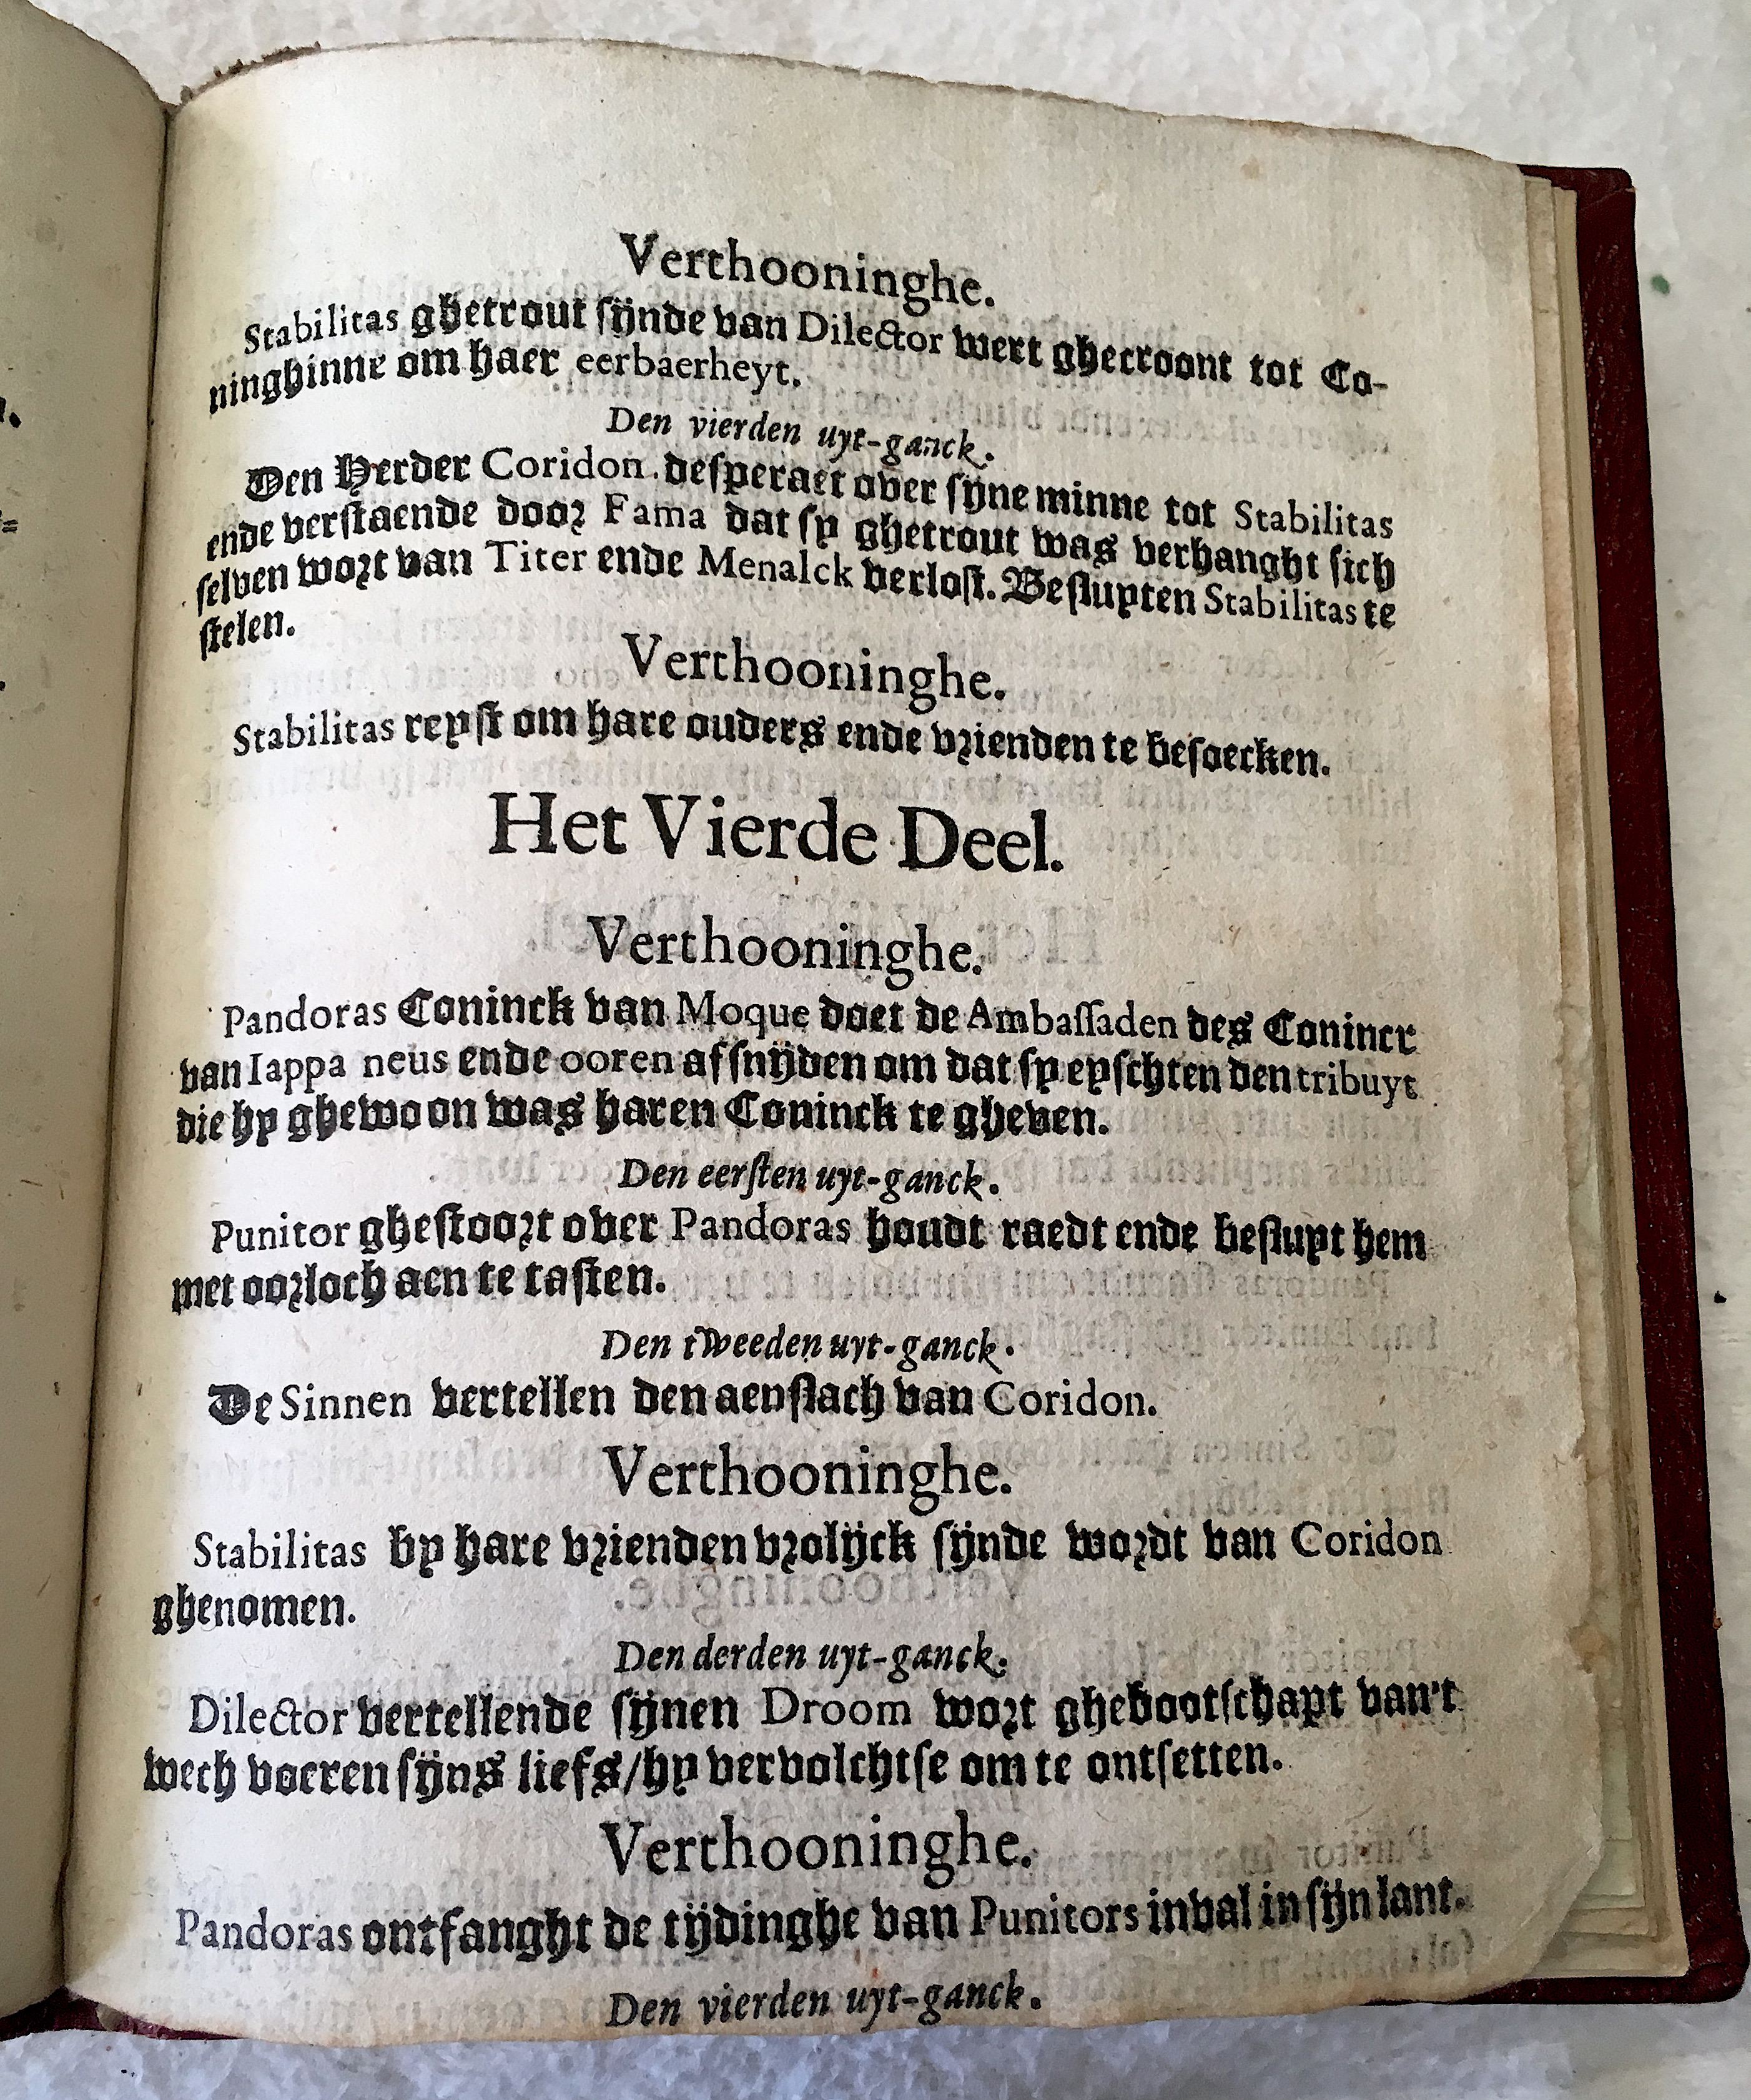 Verthooninghe.
Stabilitas ghetrout sijnde van Dilector wert ghecroont tot Co-
ninghinne om haer eerbaerheyt.
Den vierden uyt-ganck.
Den Herder Coridon desperaet over sijne minne tot Stabilitas
ende verstaende door Fama dat sy ghetrout was verhanght sich
selven wort van Titer ende Menalck verlost. Besluyten Stabilitas te
stelen.
Verthooninghe.
Stabilitas reyst om hare ouders ende vrienden te besoecken.
Het Vierde Deel.
Verthooninghe.
Pandoras Coninck van Moque doet de Ambassaden des Coninck
van Iappa neus ende ooren af snijden om dat sy eyschten den tribuyt
die hy ghewoon was haren Coninck te gheven.
Den eersten uyt-ganck.
Punitor ghestoort over Pandoras houdt raedt ende besluyt hem
met oorloch aen te tasten.
Den tweeden uyt-ganck.
De Sinnen vertellen den aenslach van Coridon.
Verthooninghe.
Stabilitas by hare vrienden vrolijck sijnde wordt van Coridon
ghenomen.
Den derden uyt-ganck.
Dilector vertellende sijnen Droom wort ghebootschapt van't
wech voeren sijns liefs/hy vervolchtse om te ontsetten.
Verthooninghe.
Pandoras ontfanght de tijdinghe van Punitors inval in sijn lant.
Den vierden uyt-ganck.